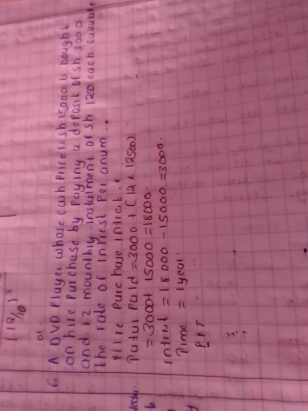 (19/10)²
of
6 A DVD Player whose cash Price is sh 15000 is bought
on hire Purchase by Paying a deposit of sh 3000
and 12 mounthly instalment of sh 1250 each. Calculate
the rate of intrest Per anum.
Hire Purchase Intrest.
Total Paid = 3000 + (12 x 1250)
= 3000 + 15000 = 18000.
intrest = 18000 - 15000 = 3000.
Time = 1 year
PRT